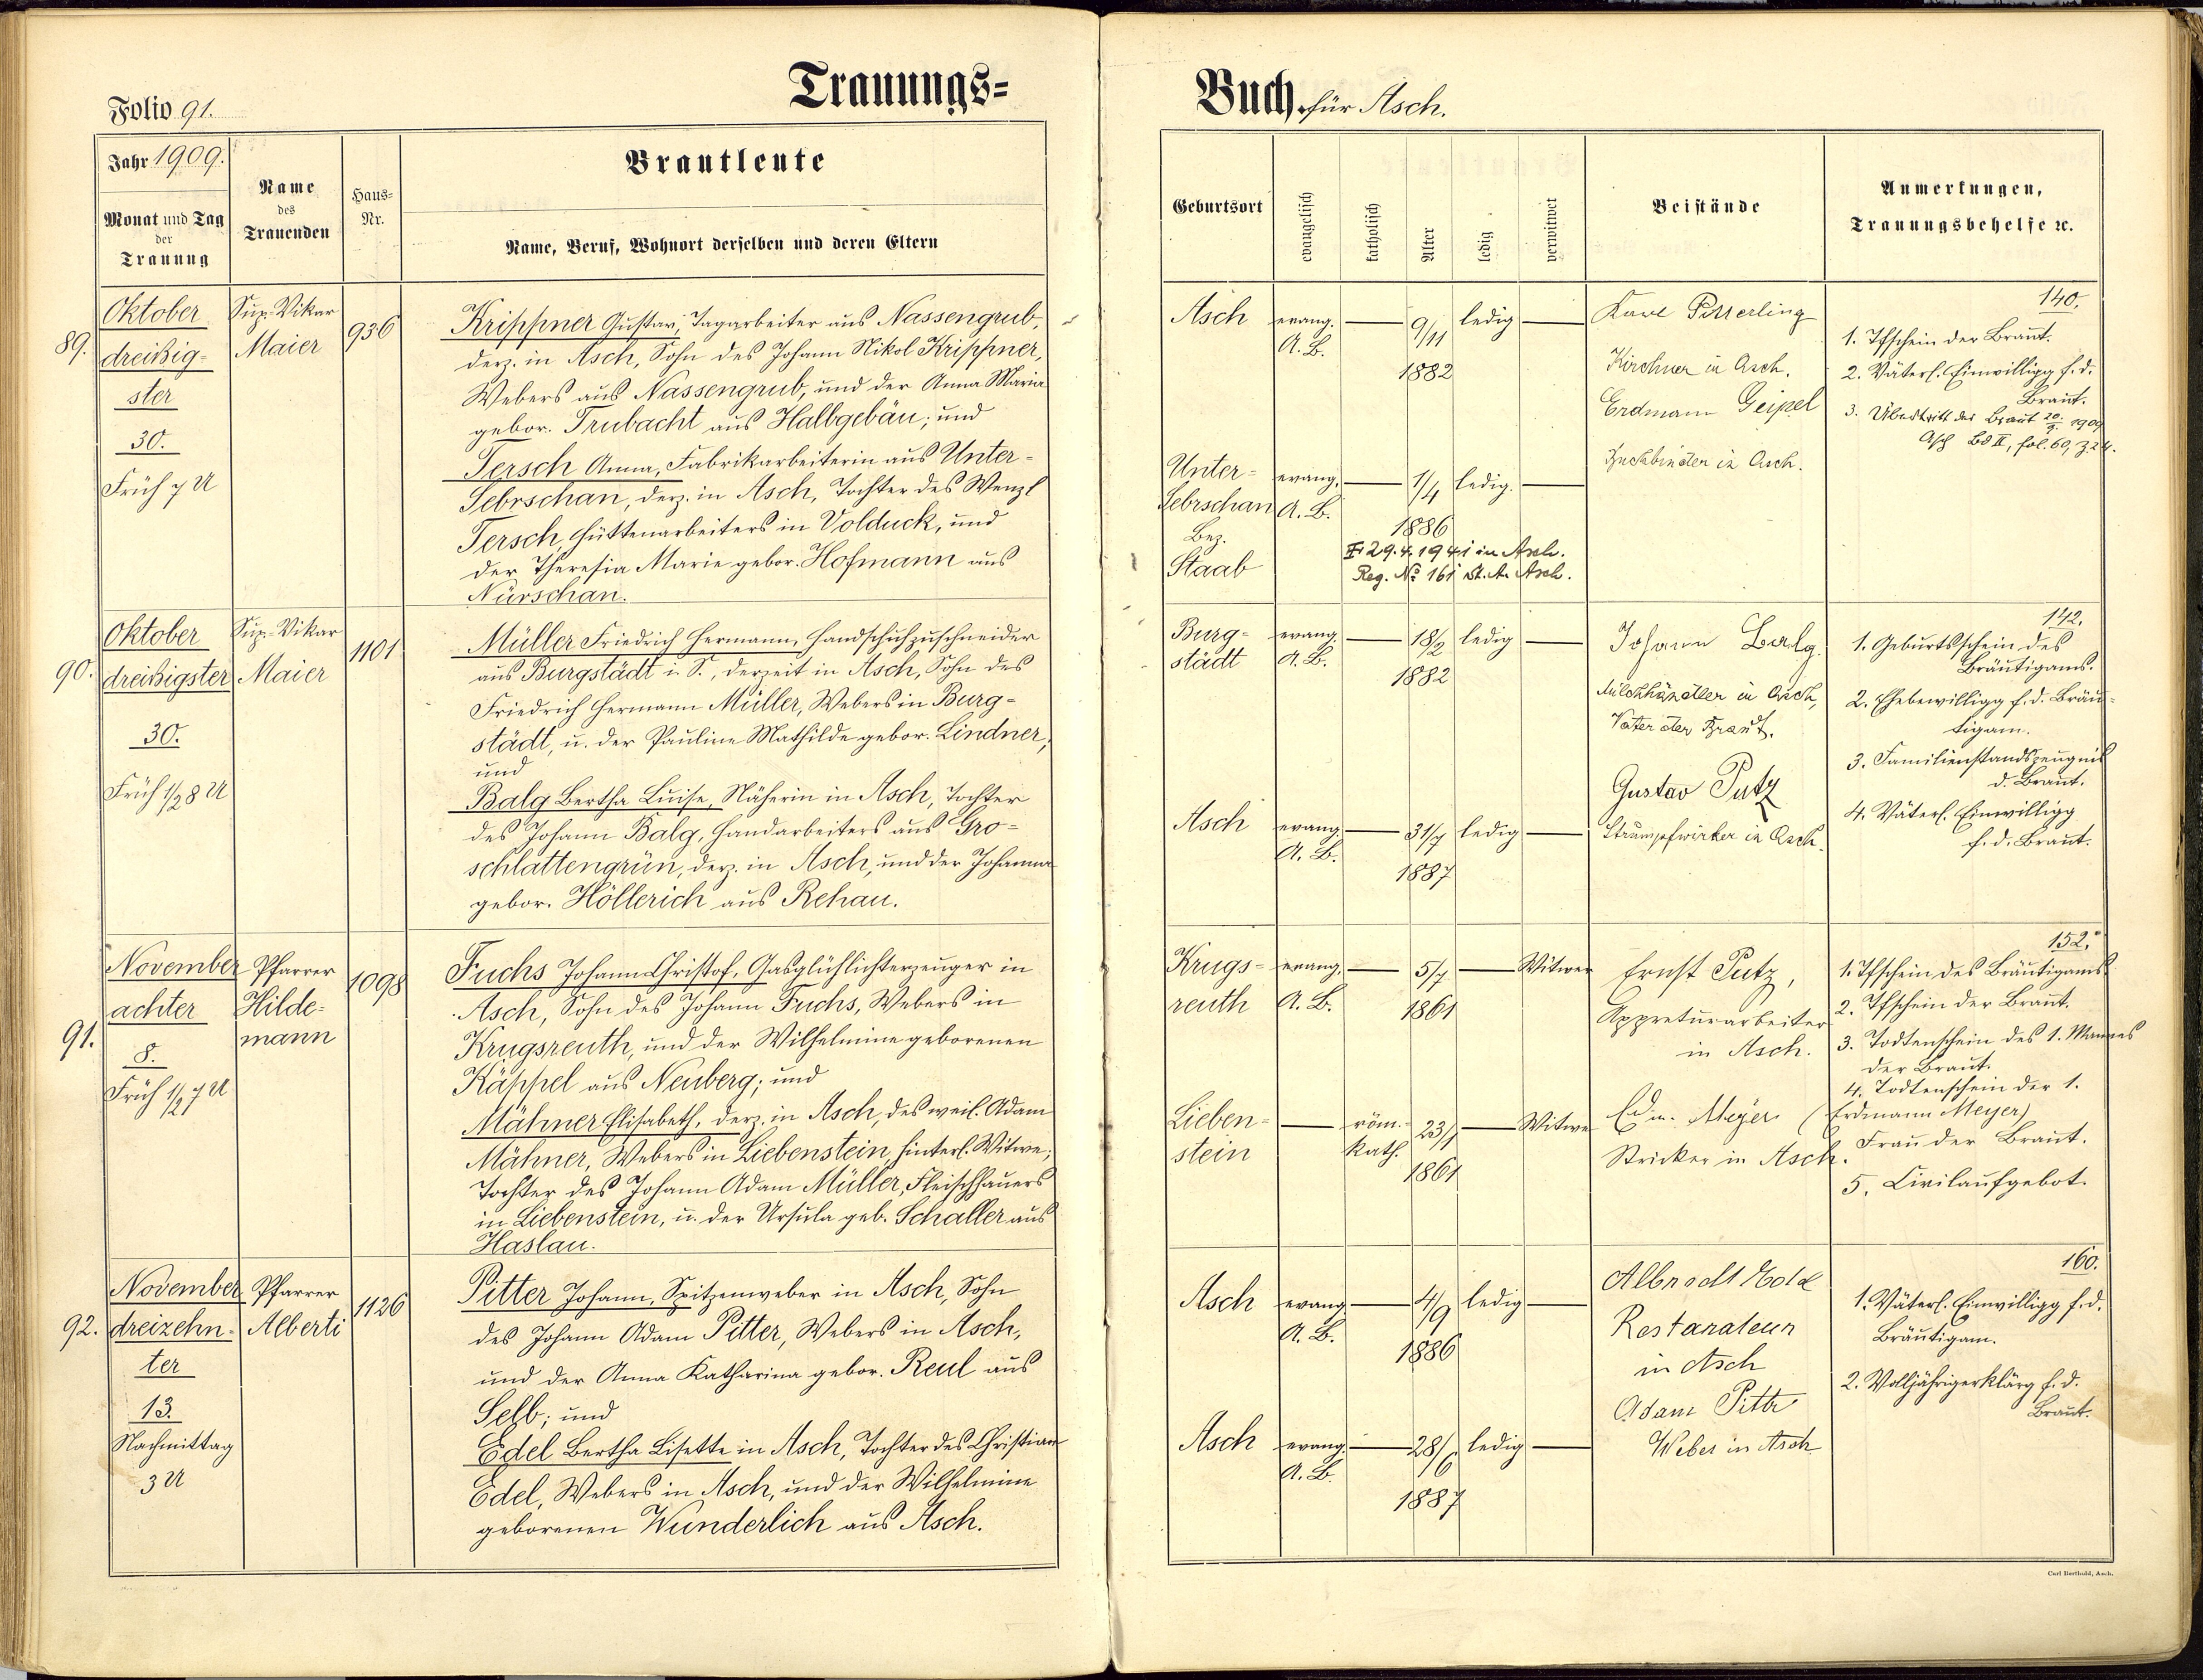 Folio 91.
Trauungs=
Jahr 1909.
Monat und Tag
der
Trauung
Name
des
Trauenden
Haus-
Nr.
Brautleute
Name, Beruf, Wohnort derselben und deren Eltern
89.
Oktober
dreißig-
ster
30.
Früh 7 U
Sup.-Vikar
Maier
936
Krippner Gustav, Tagarbeiter aus Nassengrub,
derz. in Asch, Sohn des Johann Nikol Krippner,
Webers aus Nassengrub, und der Anna Maria
gebor. Trubacht aus Halbgebäu; und
Tersch Anna, Fabrikarbeiterin aus Unter-
Sebrschan, derz. in Asch, Tochter des Wenzl
Tersch, Hüttenarbeiters in Volduck, und
der Theresia Marie gebor. Hofmann aus
Nürschan.
90.
Oktober
dreißigster
30.
Früh 1/2 8 U
Sup.-Vikar
Maier
1101
Müller Friedrich Hermann, Handschuhzuschneider
aus Burgstädt i. S., derzeit in Asch, Sohn des
Friedrich Hermann Müller, Webers in Burg-
städt, u. der Pauline Mathilde gebor. Lindner;
und
Balg Bertha Luise, Näherin in Asch, Tochter
des Johann Balg, Handarbeiters aus Gro-
schlattengrün, derz. in Asch, und der Johanna
gebor. Höllerich aus Rehau.
91.
November
achter
8.
Früh 1/2 7 U
Pfarrer
Hilde-
mann
1098
Fuchs Johann Christof, Gasglühlichterzeuger in
Asch, Sohn des Johann Fuchs, Webers in
Krugsreuth, und der Wilhelmine geborenen
Käppel aus Neuberg; und
Mähner Elisabeth, derz. in Asch, des weil. Adam
Mähner, Webers in Liebenstein, hinterl. Witwe;
Tochter des Johann Adam Müller, Fleischhauers
in Liebenstein, u. der Ursula geb. Schaller aus
Haslau.
92.
November
dreizehn-
ter
13.
Nachmittag
3 U
Pfarrer
Alberti
1126
Pitter Johann, Spitzenweber in Asch, Sohn
des Johann Adam Pitter, Webers in Asch,
und der Anna Katharina gebor. Reul aus
Selb; und
Edel Bertha Lisette in Asch, Tochter des Christian
Edel, Webers in Asch, und der Wilhelmine
geborenen Wunderlich aus Asch.
Buch. für Asch.
Geburtsort
evangelisch
katholisch
Alter
ledig
verwitwet
Beistände
Anmerkungen,
Trauungsbehelfe ꝛc.
Asch
evang.
A. B.
9/11
1882
ledig
Unter-
Sebrschan
Bez.
Staab
evang.
A. B.
1/4
1886
ledig.
29.4.1941 in Asch.
Reg. No 161 St. A. Asch.
Karl Pitterling
Kirchner in Asch.
Erdmann Geipel
Buchbinder in Asch.
140.
1. Tfschein der Braut.
2. Väterl. Einwilligg f. d.
Braut.
3. Übertritt der Braut 20/9. 1909
Asch Bd II, fol. 60, Z. 24.
Burg-
städt
evang.
A. B.
18/2
1882
ledig
Asch
evang.
A. B.
31/7
1887
ledig
Johann Balg.
Milchhändler in Asch,
Vater der Braut.
Gustav Putz
Strumpfwirker in Asch.
142.
1. Geburtsschein des
Bräutigams.
2. Ehebewilligg f. d. Bräu-
tigam.
3. Familienstandszeugnis
d. Braut.
4. Väterl. Einwilligg
f. d. Braut.
Krugs-
reuth
evang.
A. B.
5/7
1861
Witwer
Lieben-
stein
röm.-
kath.
23/1
1861
Witwe
Ernst Putz,
Appreturarbeiter
in Asch.
Edm. Meyer (Erdmann Meyer)
Stricker in Asch.
152.
1. Tfschein des Bräutigams.
2. Tfschein der Braut.
3. Todtenschein des 1. Mannes
der Braut.
4. Todtenschein der 1.
Frau der Braut.
5. Civilaufgebot.
Asch
evang.
A. B.
4/9
1886
ledig
Asch
evang.
A. B.
28/6
1887
ledig
Albrecht
Restaurateur
in Asch
Adam Pitter
Weber in Asch
160.
1. Väterl. Einwilligg f. d.
Bräutigam.
2. Volljährigerklärg f. d.
Braut.
Carl Berthold, Asch.